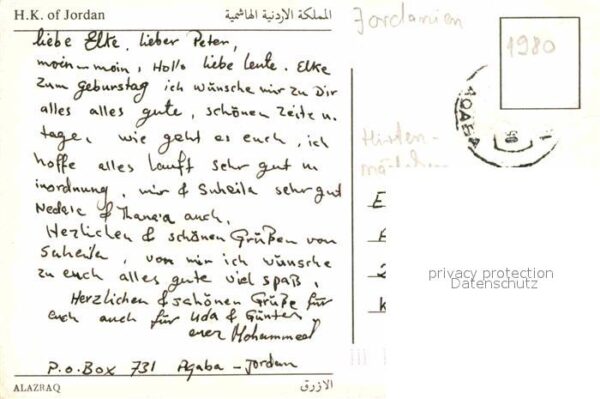 H.K. of Jordan
المملكة الاردنية الهاشمية
liebe Elke, lieber Peter,
moin-moin, Hallo liebe leute. Elke
zum geburstag ich wünsche mir zu Dir
alles alles gute, schönen Zeite u.
tage, wie geht es euch, ich
hoffe alles lauft sehr gut u
inordnung, mir & Suheila sehr gut
auch.
Herzlichen & schönen Grüßen von
Suheila, von mir ich wünsche
zu euch alles gute viel spaß,
Herzlichen & schönen Grüße für
euch auch für Uda & Günter,
euer Mohammed
P.o.Box 731 Aqaba - Jordan
ALAZRAQ
الازرق
Jordanien
1980
AQABA
Hirten-
mädchen
E
E
2
K
privacy protection
Datenschutz